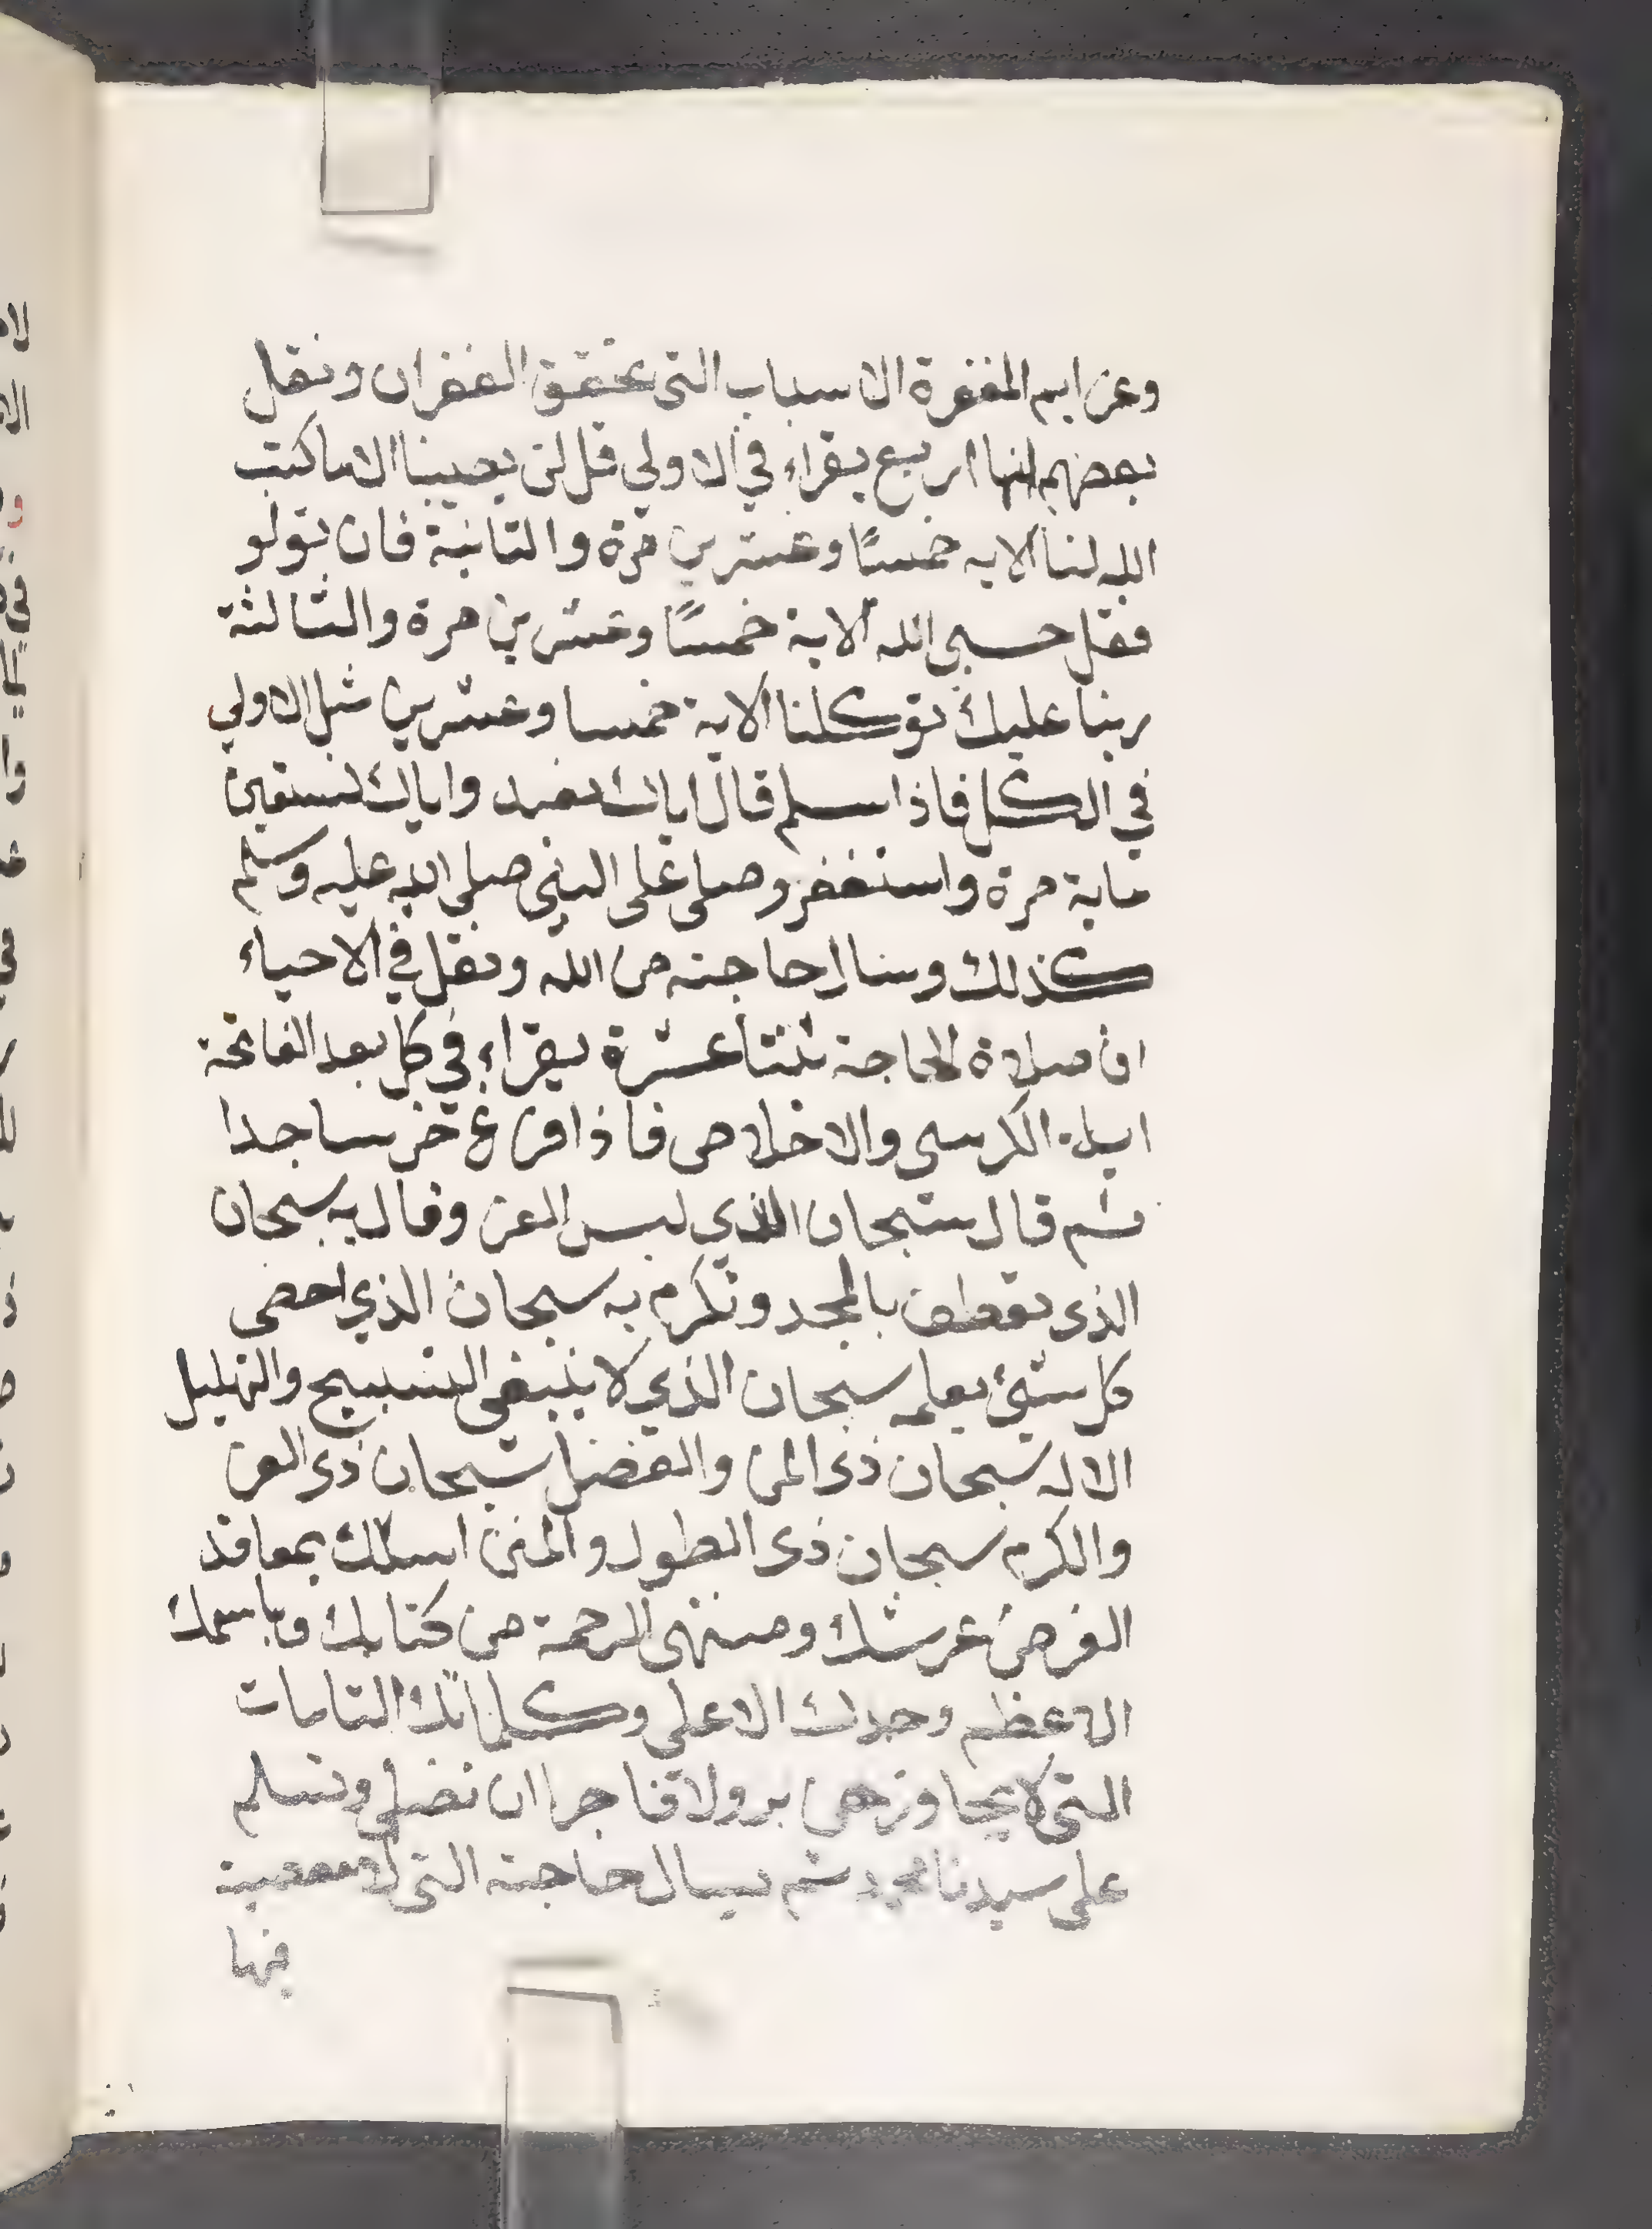 وعزايم المغفرة الاسباب التى تحقق الغفران ونقل
بعضهم انها اربع يقراء في الاولي قل لن يصيبنا الا ما كتب
الله لنا الايه خمسًا وعشرين مرة والثانية فان تولو
فقل حسبي الله الاية خمسًا وعشرين مرة والثالثة
ربنا عليك توكلنا الاية خمسا وعشرين مثل الاولي
في الكل فاذا سلم قال اياك نعبد واياك نستعين
ماية مرة واستغفر وصلى على النبي صلي الله عليه وسلم
كذلك وسنال حاجته من الله ونقل في الاحياء
ان صلاة الحاجة ثنتا عشرة يقراء في كل بعد الفاتحة
اية الكرسي والاخلاص فاذا فرغ خر ساجدا
ثم قال سبحان الذي لبس العز وقال به سبحان
الذى تعطف بالمجد وتكرم به سبحان الذي احصى
كل شيئ بعلمه سبحان الذي لا ينبغى التسبيح والتهليل
الا له سبحان ذى المن والفضل سبحان ذى العز
والكرم سبحان ذى الطول والمنن اسئلك بمعاقد
العز من عرشك ومنتهى الرحمة من كتابك وباسمك
الاعظم وجدك الاعلي وكلماتك التامات
التى لا يجاوزهن بر ولا فاجر ان تصلي وتسلم
على سيدنا محمد ثم يسال حاجته التى لا معصية
فيها